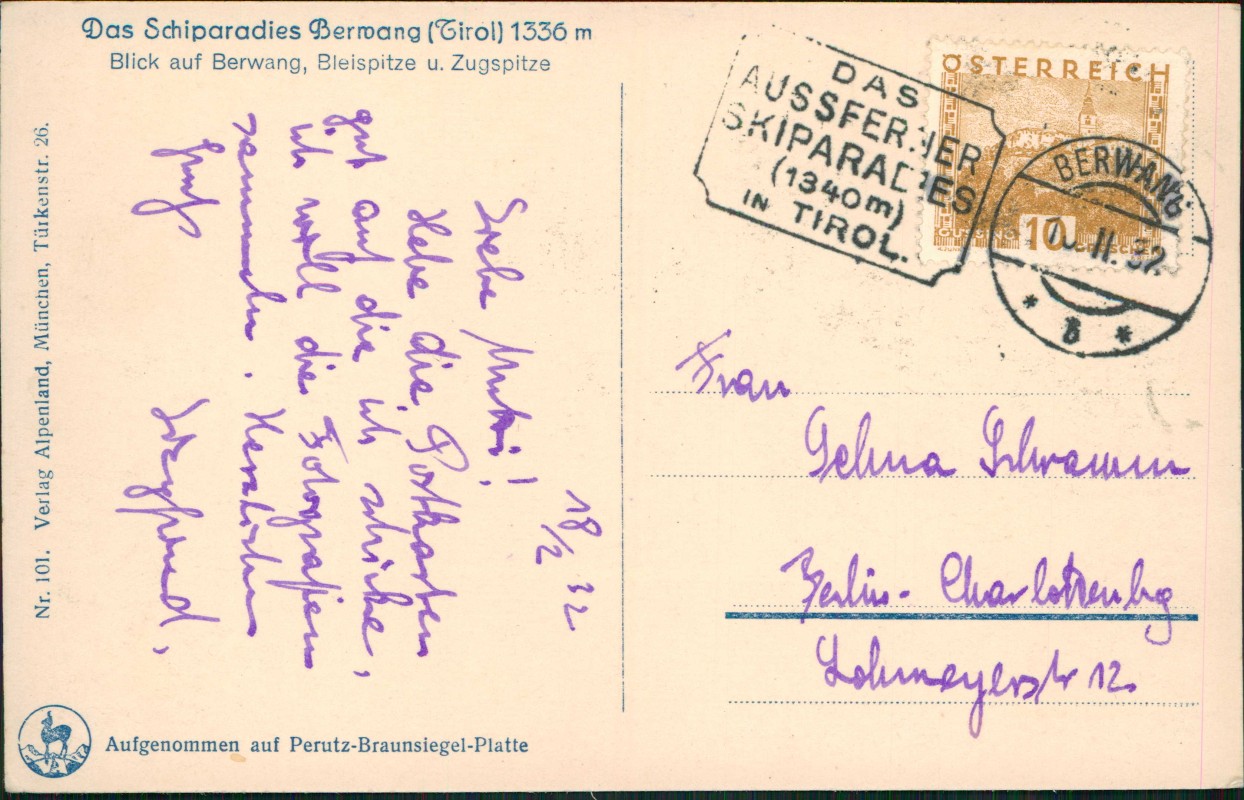 Das Schiparadies Berwang (Tirol) 1336 m
Blick auf Berwang, Bleispitze u. Zugspitze
Nr. 101. Verlag Alpenland, München, Türkenstr. 26.
18/2 32
Liebe Mutti!
Hebe die Postkarten
gut auf die ich schicke,
ich will die Fotografien
sammeln. Herzlichen
Gruß
Aufgenommen auf Perutz-Braunsiegel-Platte
DAS
AUSSFERNER
SKIPARADIES
(1340m)
IN TIROL.
ÖSTERREICH
10
BERWANG
II. 32
* b *
Frau
Schramm
Berlin-Charlottenbg
Lohmeyerstr 12.